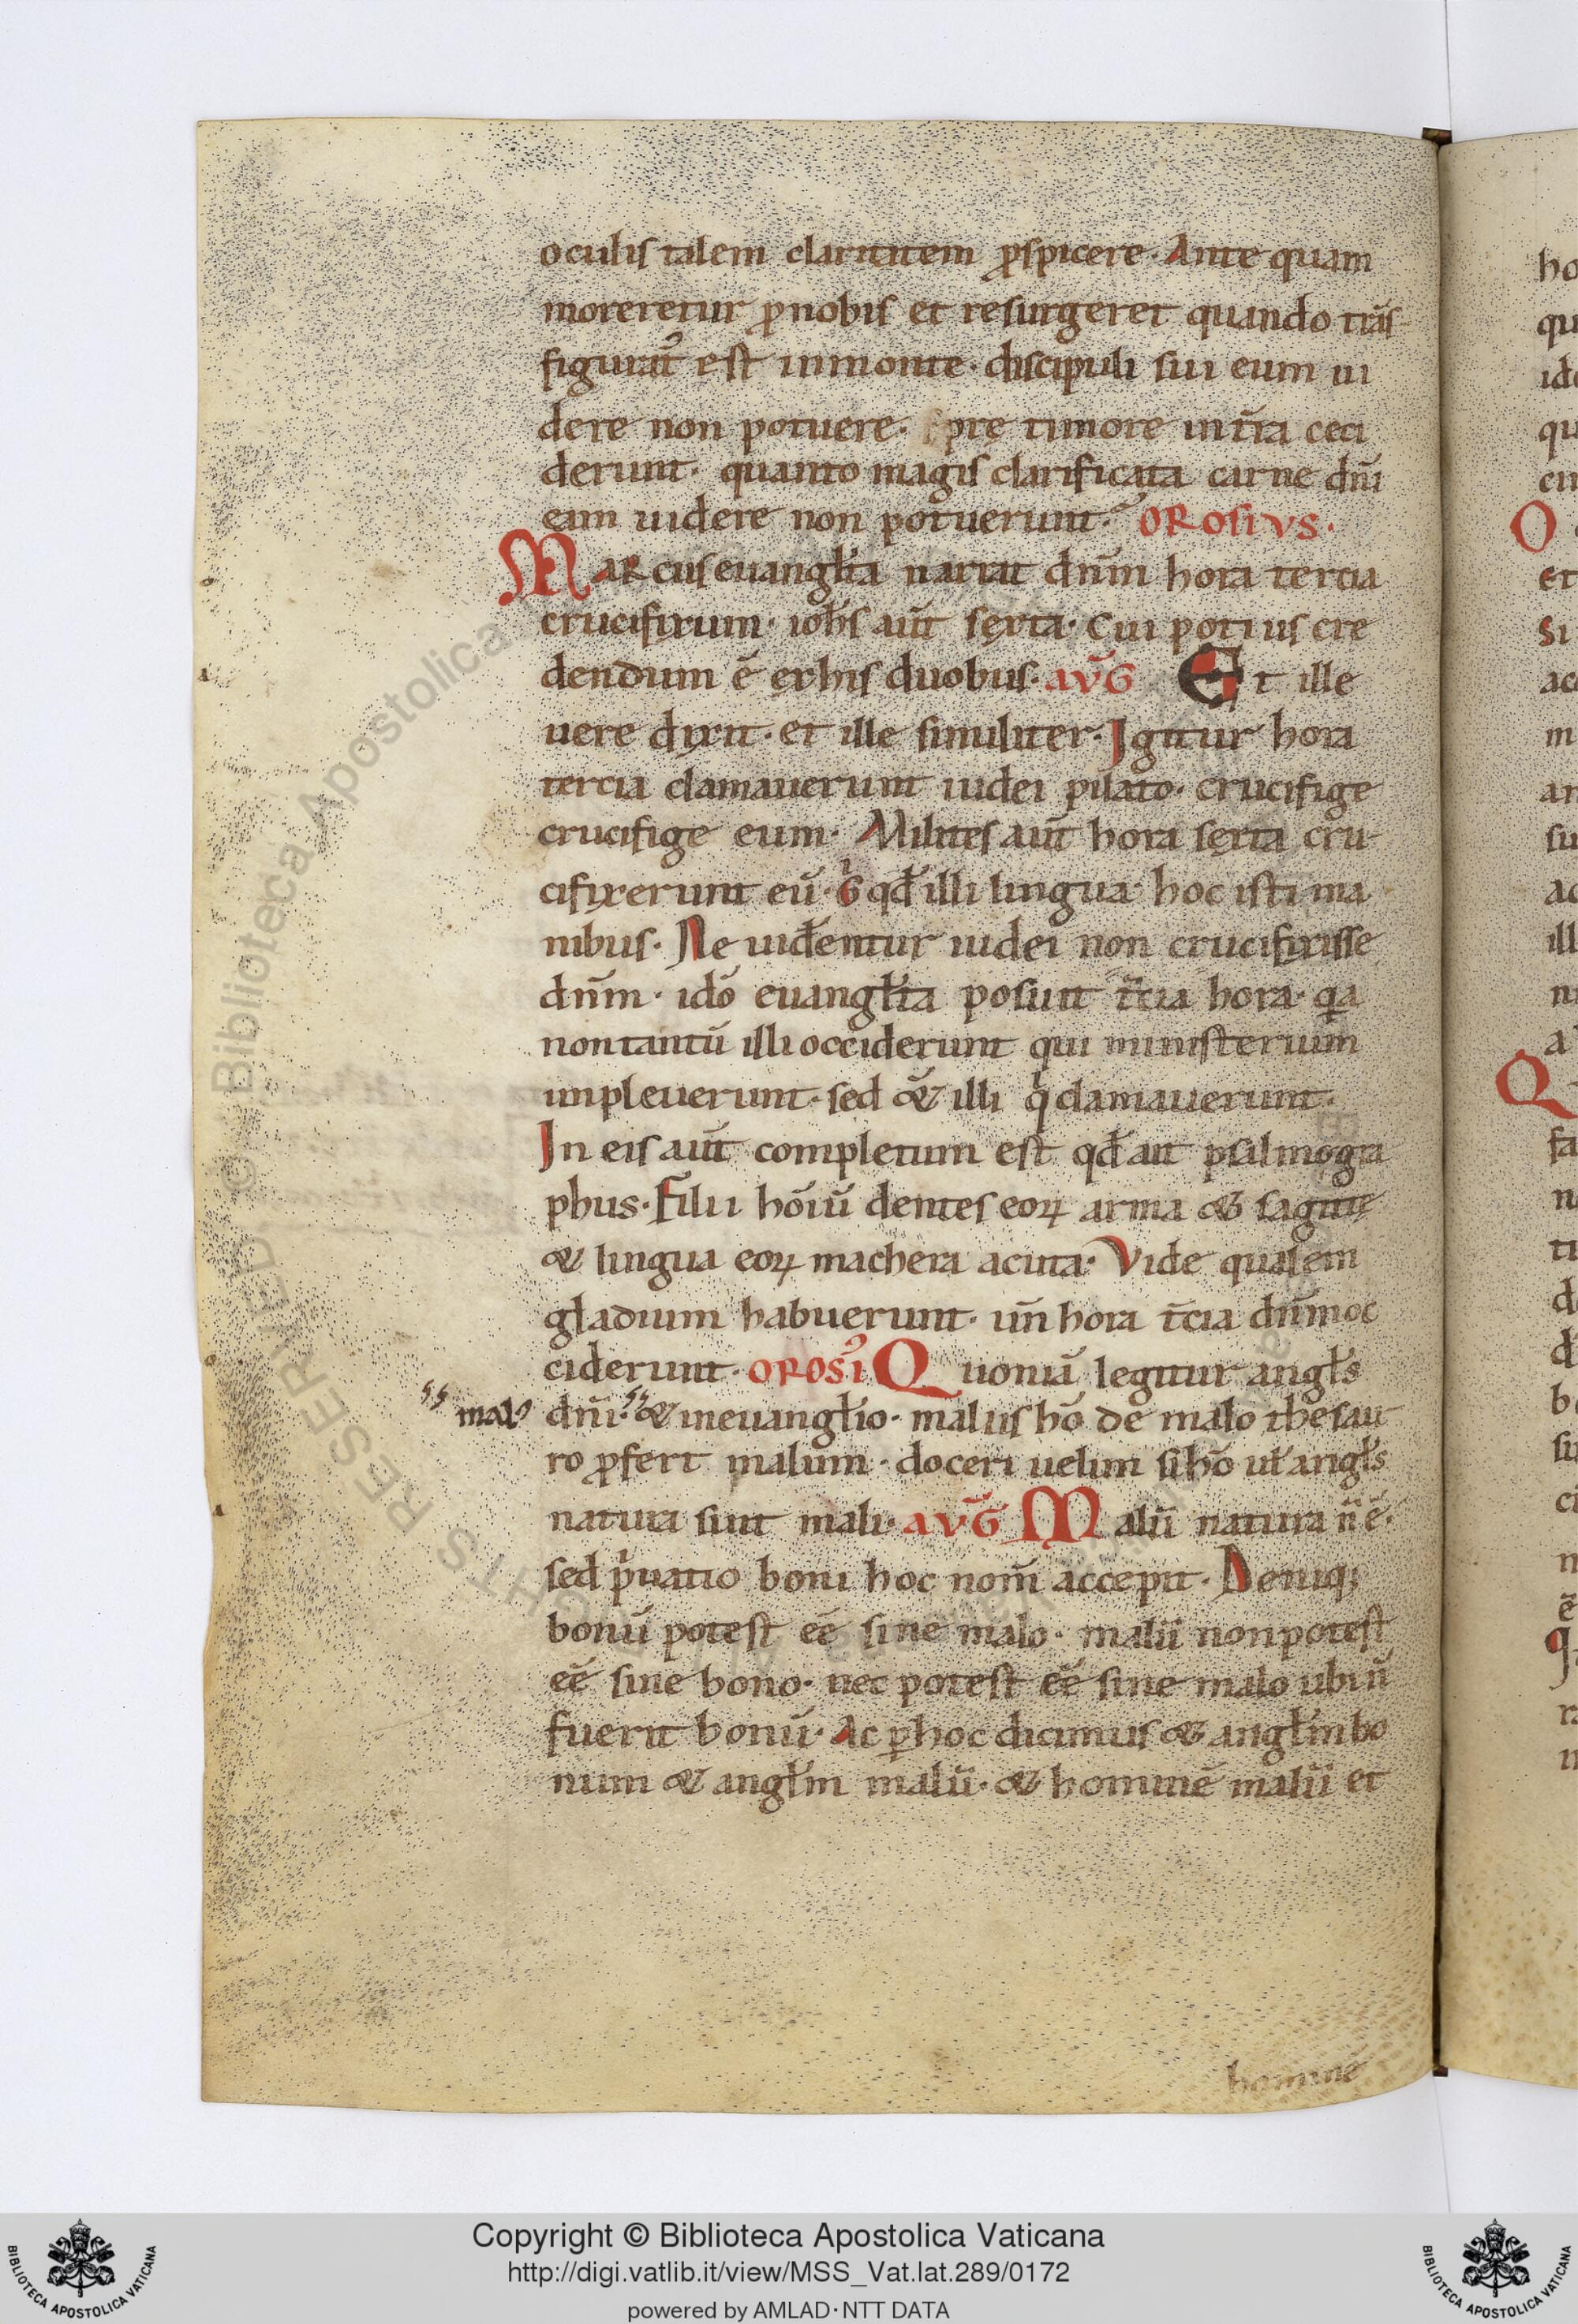 oculis talem claritatem ꝓspicere. Ante quam
moreretur ꝓnobis et resurgeret quando trãs
figurat᾽ est inmonte. discipuli sui eum ui
dere non potuere. prę timore int̃ra ceci
derunt. quanto magis clarificata carne dñi
eum uidere non potuerunt. OROSIVS.
MARcus euanglƚa narrat dñm hora tercia
crucifixum. iohs̃ aut̃ sexta. Cui potius cre
dendum ẽ exhis duobus. AVG̃ Et ille
uere dixit. et ille similiter. Igitur hora
tercia clamauerunt iudei pilato. crucifige
crucifige eum. Milites aut̃ hora sexta cru-
cifixerunt eũ. gͥ qđ illi lingua hoc isti ma
nibus. Ne uidentur iudei non crucifixisse
dñm. idõ euanglƚa posuit t̃cia hora. qa
nontantũ illi occiderunt qui ministerium
impleuerunt. sed & illi qͥ clamauerunt.
In eis aut̃ completum est qđ ait psalmogra
phus. Filii hõiũ dentes eoꝝ arma & sagittę
& lingua eoꝝ machera acuta. Vide qualem
gladium habuerunt. uñ hora t̃cia dñm oc
ciderunt. OROSI᾽ Quoniã legitur anglƚs
malꝰ
dñi. & ineuanglƚio. malus hõ de malo thesau
ro ꝓfert malum. doceri uelim si hõ uƚ anglƚs
natura sunt mali. AVG̃ Malũ natura ñ ẽ.
sed pͥuatio boni hoc nom̃ accepit. Deniq;
bonũ potest eẽ sine malo. malũ non potest
eẽ sine bono. nec potest eẽ sine malo ubi ñ
fuerit bonũ. Ac ꝑhoc dicimus & anglƚm bo
num & anglƚm malũ. & hominẽ malũ et
hominẽ
Copyright © Biblioteca Apostolica Vaticana
http://digi.vatlib.it/view/MSS_Vat.lat.289/0172
powered by AMLAD·NTT DATA
BIBLIOTECA APOSTOLICA VATICANA
BIBLIOTECA APOSTOLICA VATICANA